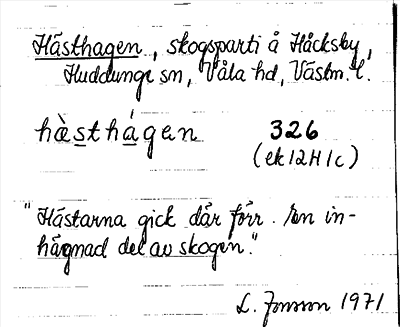 Hästhagen, skogsparti å Håcksby,
Huddunge sn, Våla hd, Västm. l.
hὰsthágen 326
(ek 12H 1c)
"Hästarna gick där förr. En in-
hägnad del av skogen."
L. Jonsson 1971